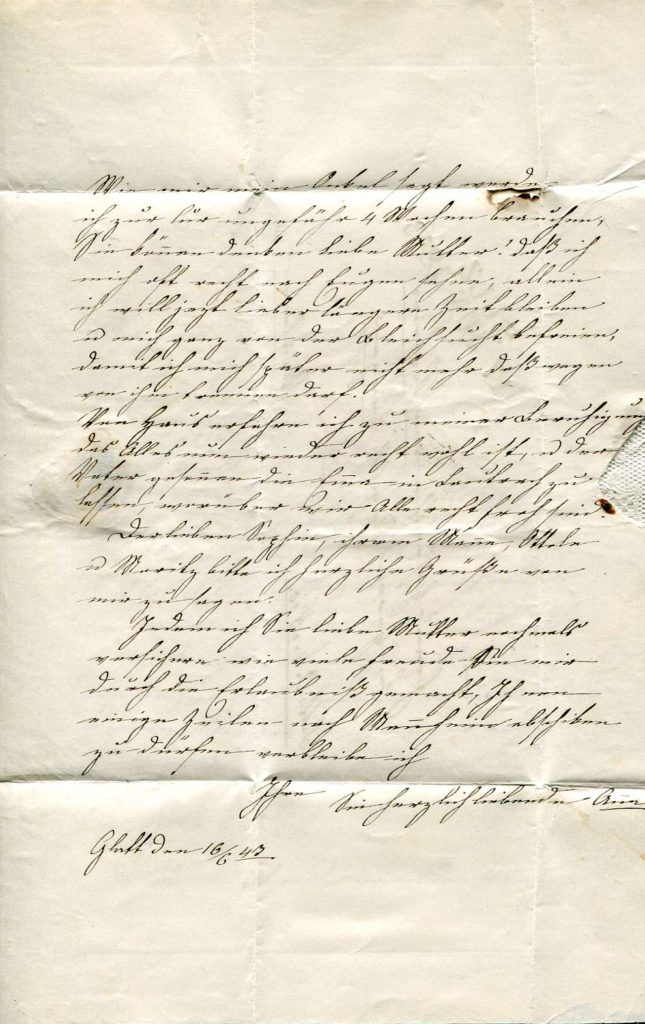 Wie mir mein Onkel sagt werde
ich zur Cur ungefähr 4 Wochen brauchen,
Sie können denken liebe Mutter! daß ich
mich oft recht nach Eugen sehne, allein
ich will jezt lieber längere Zeit bleiben
u mich ganz von der Bleichsucht befreien,
damit ich mich später nicht mehr deßwegen
von ihm trennen darf.
Von Haus erfahre ich zu meiner Beruhigung
das Alles nun wieder recht wohl ist, u der
Vater gesonnen die Emma in zu
lassen, worüber wir Alle recht froh sind.
Der lieben Sophie, ihrem Manne,
u Moritz bitte ich herzliche Grüße von
mir zu sagen.
Indem ich Sie liebe Mutter nochmals
versichere wie viele Freude Sie mir
durch die Erlaubniß gemacht, Ihnen
einige Zeilen nach Mannheim abschiken
zu dürfen verbleibe ich
Ihre
Sie herzlich liebende Anna
Glatt den 16/6 43